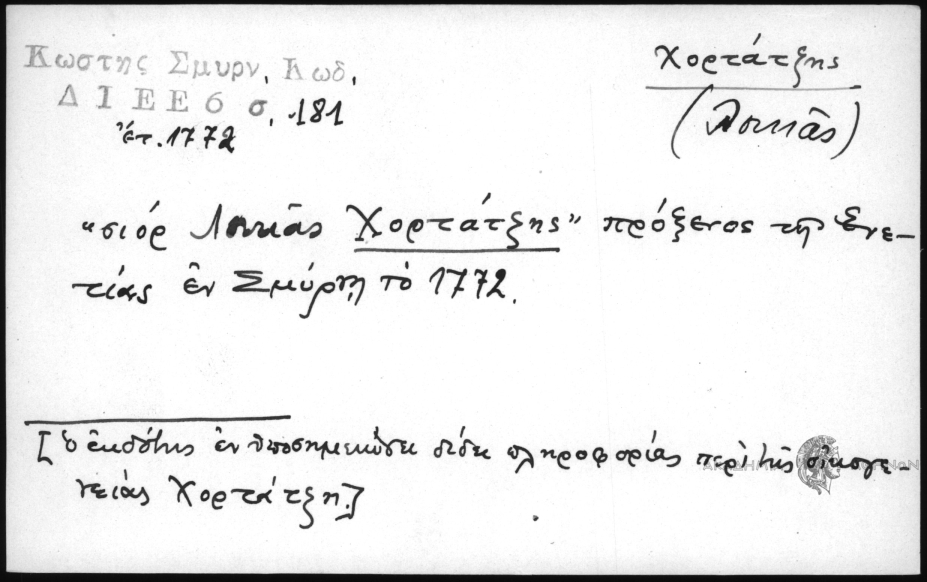 Κωστης Σμυρν. Κωδ.
ΔΙΕΕ 6 σ. 181
ἔτ. 1772
Χορτάτζης
(Λουκᾶς)
"σιόρ Λουκᾶς Χορτάτζης" πρόξενος τῆς Ἐνε-
τίας ἐν Σμύρνῃ τὸ 1772.
[ὁ ἐκδότης ἐν ὑποσημειώσει δίδει πληροφορίας περὶ τῆς οἰκογε-
νείας Χορτάτζη.]